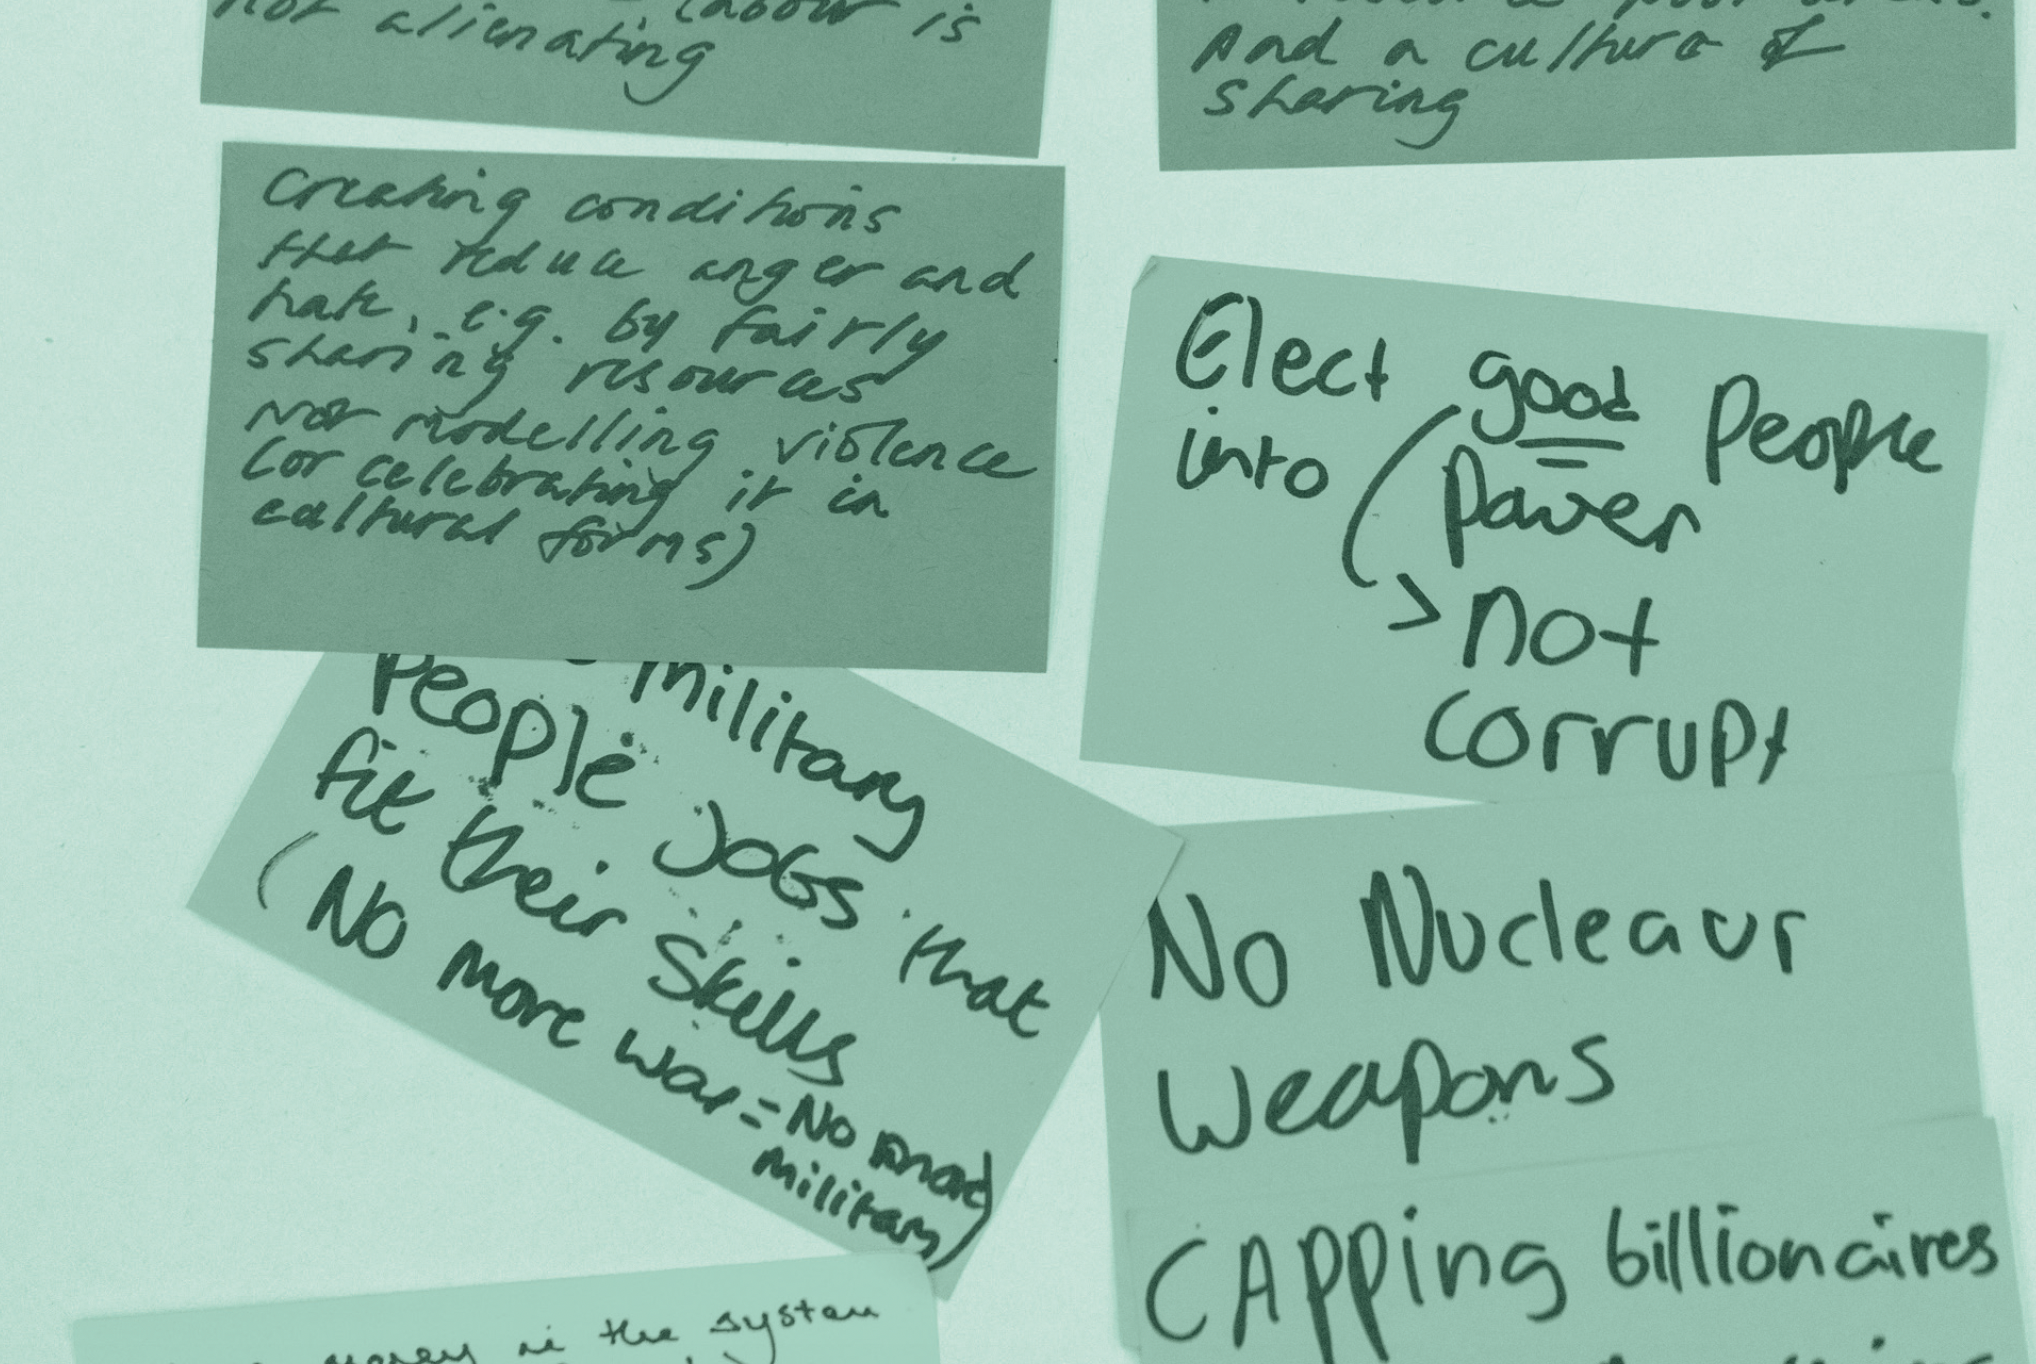 labour is
not alienating
And a culture of
sharing
Creating conditions
that reduce anger and
hate, e.g. by fairly
sharing resources
Not modelling violence
(or celebrating it in
cultural forms)
Elect good People
into Power
> not
corrupt
military
People Jobs that
fit their Skills
(No more war = No more
military)
No Nucleaur
Weapons
CAPPing billionaires
money in the system